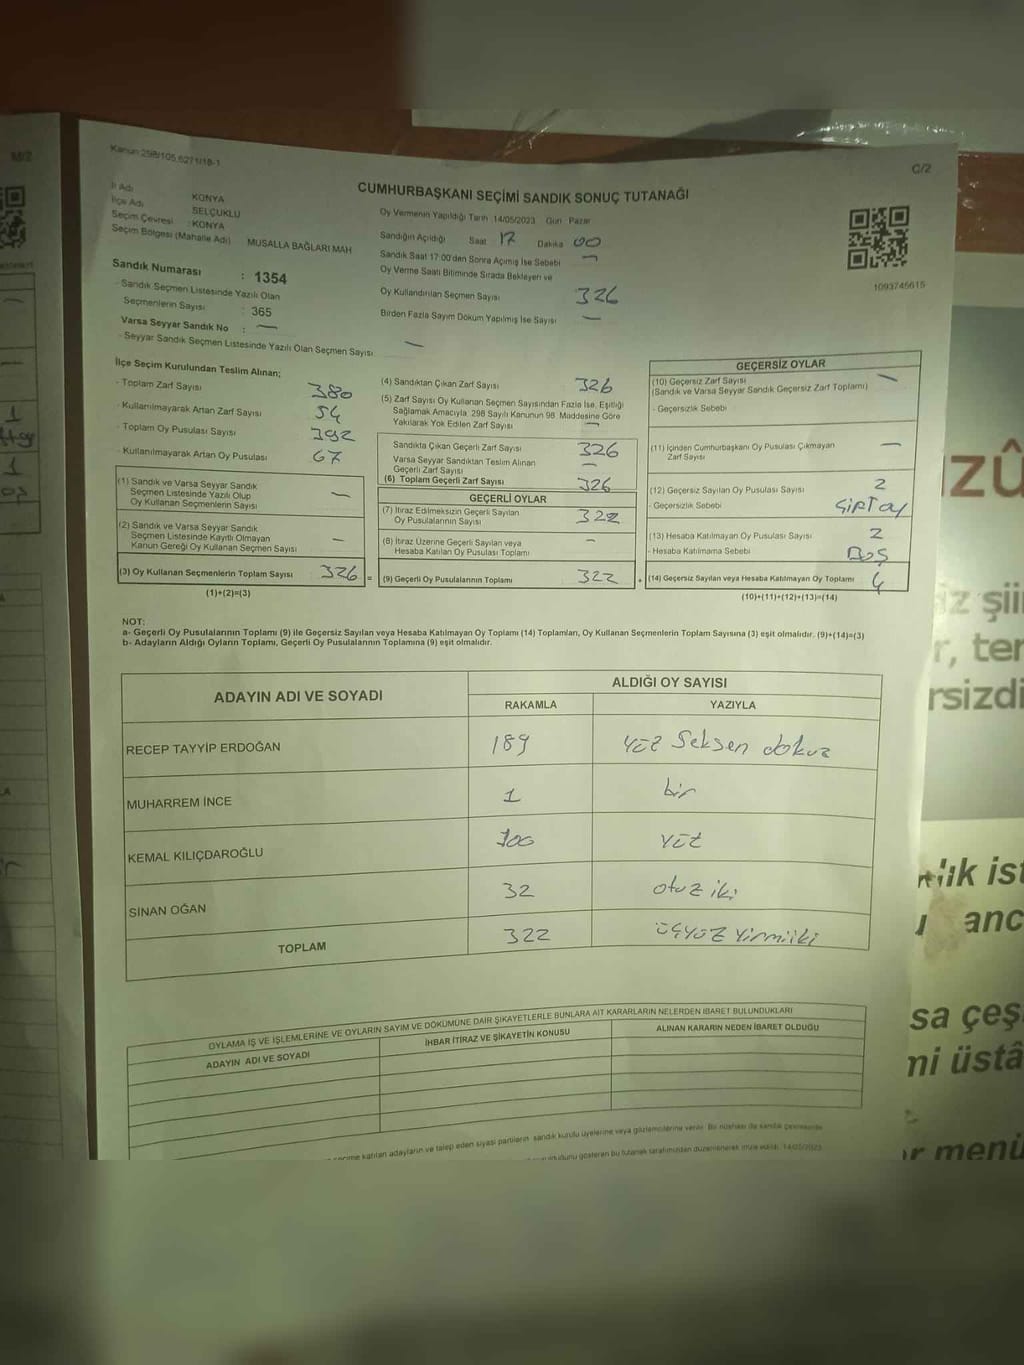 Kanun:298/105,6271/18-1
C/2
CUMHURBAŞKANI SEÇİMİ SANDIK SONUÇ TUTANAĞI
İl Adı KONYA
İlçe Adı SELÇUKLU
Seçim Çevresi : KONYA
Seçim Bölgesi (Mahalle Adı) MUSALLA BAĞLARI MAH
Sandık Numarası : 1354
- Sandık Seçmen Listesinde Yazılı Olan
Seçmenlerin Sayısı : 365
Varsa Seyyar Sandık No : —
- Seyyar Sandık Seçmen Listesinde Yazılı Olan Seçmen Sayısı —
Oy Vermenin Yapıldığı Tarih 14/05/2023 Gün Pazar
Sandığın Açıldığı Saat 17 Dakika 00
Sandık Saat 17:00'den Sonra Açımış İse Sebebi —
Oy Verme Saati Bitiminde Sırada Bekleyen ve
Oy Kullandırılan Seçmen Sayısı 326
Birden Fazla Sayım Döküm Yapılmış İse Sayısı —
1093745615
İlçe Seçim Kurulundan Teslim Alınan;
- Toplam Zarf Sayısı 380
- Kullanılmayarak Artan Zarf Sayısı 54
- Toplam Oy Pusulası Sayısı 392
- Kullanılmayarak Artan Oy Pusulası 67
(1) Sandık ve Varsa Seyyar Sandık
Seçmen Listesinde Yazılı Olup
Oy Kullanan Seçmenlerin Sayısı —
(2) Sandık ve Varsa Seyyar Sandık
Seçmen Listesinde Kayıtlı Olmayan
Kanun Gereği Oy Kullanan Seçmen Sayısı —
(3) Oy Kullanan Seçmenlerin Toplam Sayısı 326 =
(1)+(2)=(3)
(4) Sandıktan Çıkan Zarf Sayısı 326
(5) Zarf Sayısı Oy Kullanan Seçmen Sayısından Fazla İse, Eşitliği
Sağlamak Amacıyla, 298 Sayılı Kanunun 98. Maddesine Göre
Yakılarak Yok Edilen Zarf Sayısı —
Sandıkta Çıkan Geçerli Zarf Sayısı 326
Varsa Seyyar Sandıktan Teslim Alınan
Geçerli Zarf Sayısı —
(6) Toplam Geçerli Zarf Sayısı 326
GEÇERLİ OYLAR
(7) İtiraz Edilmeksizin Geçerli Sayılan
Oy Pusulalarının Sayısı 322
(8) İtiraz Üzerine Geçerli Sayılan veya
Hesaba Katılan Oy Pusulası Toplamı —
(9) Geçerli Oy Pusulalarının Toplamı 322 +
GEÇERSİZ OYLAR
(10) Geçersiz Zarf Sayısı —
(Sandık ve Varsa Seyyar Sandık Geçersiz Zarf Toplamı)
- Geçersizlik Sebebi
(11) İçinden Cumhurbaşkanı Oy Pusulası Çıkmayan
Zarf Sayısı —
(12) Geçersiz Sayılan Oy Pusulası Sayısı 2
- Geçersizlik Sebebi
(13) Hesaba Katılmayan Oy Pusulası Sayısı 2
- Hesaba Katılmama Sebebi BOŞ
(14) Geçersiz Sayılan veya Hesaba Katılmayan Oy Toplamı 4
(10)+(11)+(12)+(13)=(14)
NOT:
a- Geçerli Oy Pusulalarının Toplamı (9) ile Geçersiz Sayılan veya Hesaba Katılmayan Oy Toplamı (14) Toplamları, Oy Kullanan Seçmenlerin Toplam Sayısına (3) eşit olmalıdır. (9)+(14)=(3)
b- Adayların Aldığı Oyların Toplamı, Geçerli Oy Pusulalarının Toplamına (9) eşit olmalıdır.
ADAYIN ADI VE SOYADI ALDIĞI OY SAYISI
RAKAMLA YAZIYLA
RECEP TAYYİP ERDOĞAN 189 Yüz Seksen dokuz
MUHARREM İNCE 1 bir
KEMAL KILIÇDAROĞLU 100 Yüz
SİNAN OĞAN 32 otuz iki
TOPLAM 322 üçyüz Yirmiiki
OYLAMA İŞ VE İŞLEMLERİNE VE OYLARIN SAYIM VE DÖKÜMÜNE DAİR ŞİKAYETLERLE BUNLARA AİT KARARLARIN NELERDEN İBARET BULUNDUKLARI
ADAYIN ADI VE SOYADI İHBAR İTİRAZ VE ŞİKAYETİN KONUSU ALINAN KARARIN NEDEN İBARET OLDUĞU
katılan adayların ve talep eden siyasi partilerin sandık kurulu üyelerine veya gözlemcilerine verilir. Bir nüshası da sandık çevresinde
gösteren bu tutanak tarafımızdan düzenlenerek imza edildi. 14/05/2023
zû
iz şiir
r, ter
rsizdi
lık ist
anc
sa çeşi
mi üstâ
ır menü